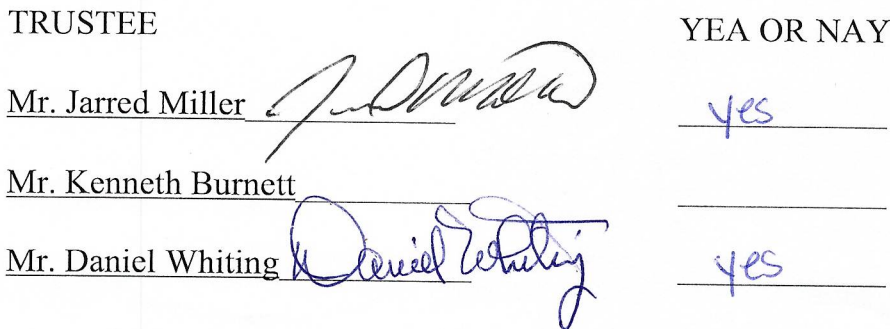 TRUSTEE YEA OR NAY
Mr. Jarred Miller yes
Mr. Kenneth Burnett
Mr. Daniel Whiting Daniel Whiting yes